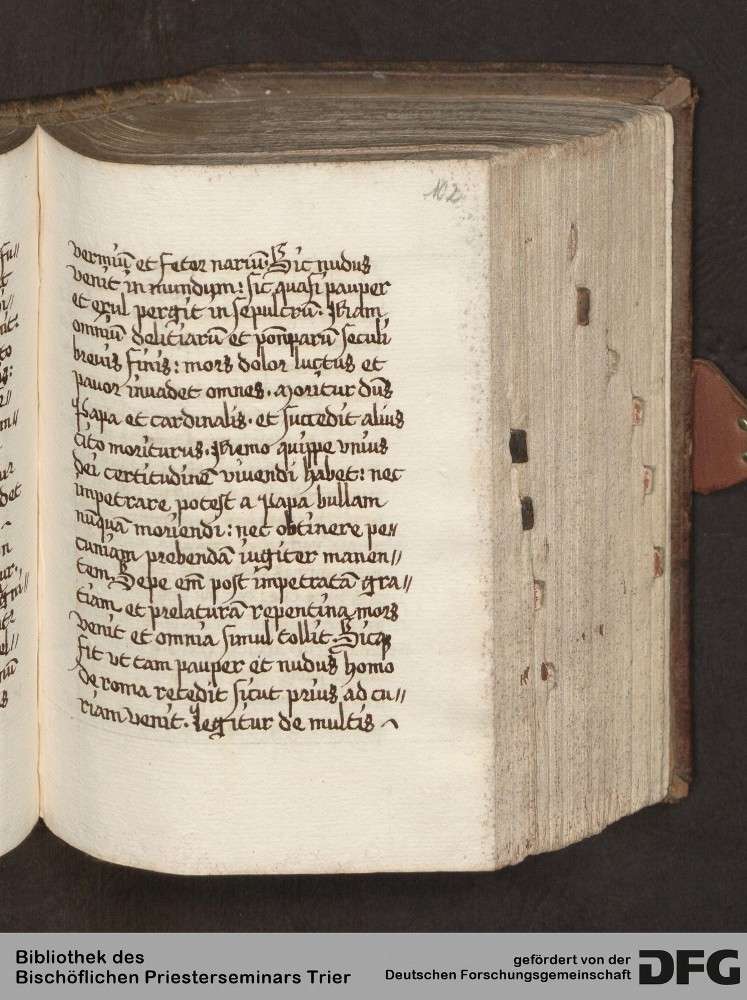 102
vermiū et fetor nariū. Sic nudus
venit in mundum: sic quasi pauper
et exul pergit in sepulcrū. Nam
omniū delitiarū et pōmparū seculi
brevis finis: mors dolor luctus et
pavor invadet omnes. Moritur dūs
Papa et cardinalis. et succedit alius
cito moriturus. Nemo quippe vnius
dei certitudinē vivendi habet: nec
impetrare potest a Papa bullam
nūquā moriendi: nec obtinere pe//
cuniam prebendā iugiter manen//
tem. Sepe em̄ post impetratā gra//
tiam et prelaturā repentina mors
venit et omnia simul tollit. Sicq;
fit vt tam pauper et nudus homo
de roma recedit sicut prius ad cu//
riam venit. Legitur de multis
Bibliothek des
Bischöflichen Priesterseminars Trier
gefördert von der
Deutschen Forschungsgemeinschaft
DFG